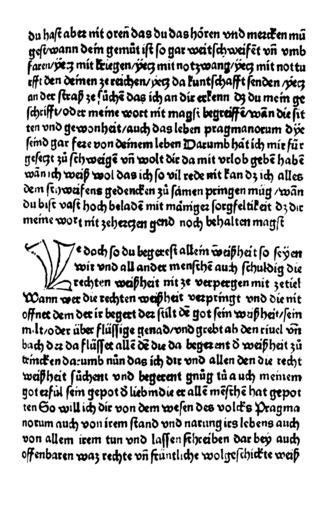 du haſt aber nit oren das du das hören vnd mercken mü
geſt/wann dein gemüt iſt ſo gar weitſchweifēt vñ vmb
faren/yetz mit kriegen/yetz mit notzwang/yetz mit not tu
rfft den deinen ze reichen/yetz da kuntſchafft ſenden/yetz
an der ſtraß ze ſůchē das ich an die erkenn dz du mein ge
ſchrifft/oder meine wort nit magſt begreiffē/wān die ſit
ten vnd gewonheit/auch das leben pragmanorum dye
ſeind gar feze von deinem leben Darumb hāt ich mir für
geſetzt zů ſchweigē vñ wolt die da mit vrlob gebē habē
wān ich weiß wol das ich ſo vil rede nit kan dz ich alles
dem ſtweifens gedencken zů ſamen pringen müg/wān
du biſt vaſt hoch beladē mit māniger ſorgfeltikeit dz dir
meine wort nit zeherzen gend noch behalten magſt
Ye doch ſo du begereſt allein weißheit ſo ſeyen
wir vnd all ander menſchē auch ſchuldig die
rechten weißheit nit ze verpergen mit zetiel
Wann wer die rechten weißheit verpringt vnd die nit
offnet dem der ir begert der ſtilt dē got ſein weißheit/ſein
milt/oder überflüſſige genad/vnd grebt ab den riuel vñ
bach dez da flüſſet allē dē die da begerent d weißheit zů
trincken darumb nün das ich dir vnd allen den die recht
weißheit ſüchent vnd begerent gnůg tů auch meinem
got erfül ſein gepot d liebm die er allē mēſchē hat gepot
ten So will ich dir von dem weſen des volcks Pragma
norum auch von irem ſtand vnd narung irs lebens auch
von allem irem tun vnd laſſen ſchreiben dar bey auch
offenbaren waz rechte vñ früntliche wolgeſchickte weiß